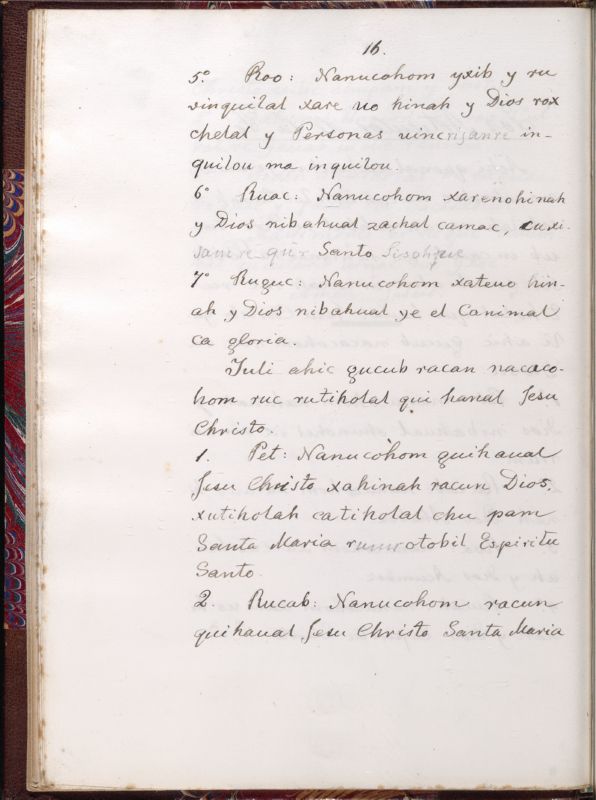 16.
5º Roo: Nanucohom yxib y ru
vinquilal xare uo hinah y Dios rox
chelal y Personas uincrisanre in-
quilou ma inquilou.
6º Ruac: Nanucohom xarenohinah
y Dios nibahual zachal camac,
Santo
7º Ruguc: Nanucohom xateuo hin-
ah y Dios nibahual ye el Canimal
ca gloria.
Yuli ahic gucub racan nacaco-
hom ruc rutiholal qui hanal Jesu
Christo.
1. Pet: Nanucohom quihaual
Jesu Christo xahinah racun Dios.
xutiholah catiholal chu pam
Santa Maria rumrotobil Espiritu
Santo.
2. Rucab: Nanucohom racun
quihaual Jesu Christo Santa Maria